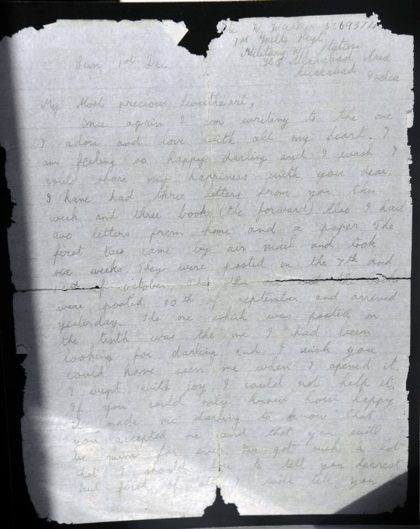 W. Walker S/6937
1st Wilts Regt
Military
Area
India
Sun 1st Dec
My Most precious Sweetheart,
Once again I am writing to the one
I adore and love with all my heart. I
am feeling so happy darling and I wish I
could share my happiness with you dear.
I have had three letters from you this
week and three books (the forward) Also I had
two letters from home and a paper. The
first two came by air mail and took
six weeks. They were posted on the 7th and
of October and the
were posted 10th of september and arrived
yesterday. The one which was posted on
the tenth was the one I had been
looking for darling and I wish you
could have seen me when I opened it
I wept with joy I could not help it,
If you could only know how happy
it made me darling to know that
you accepted me and that you will
be mine for ever. I've got such a lot
that I should like to tell you dearest
but first of all I will tell you